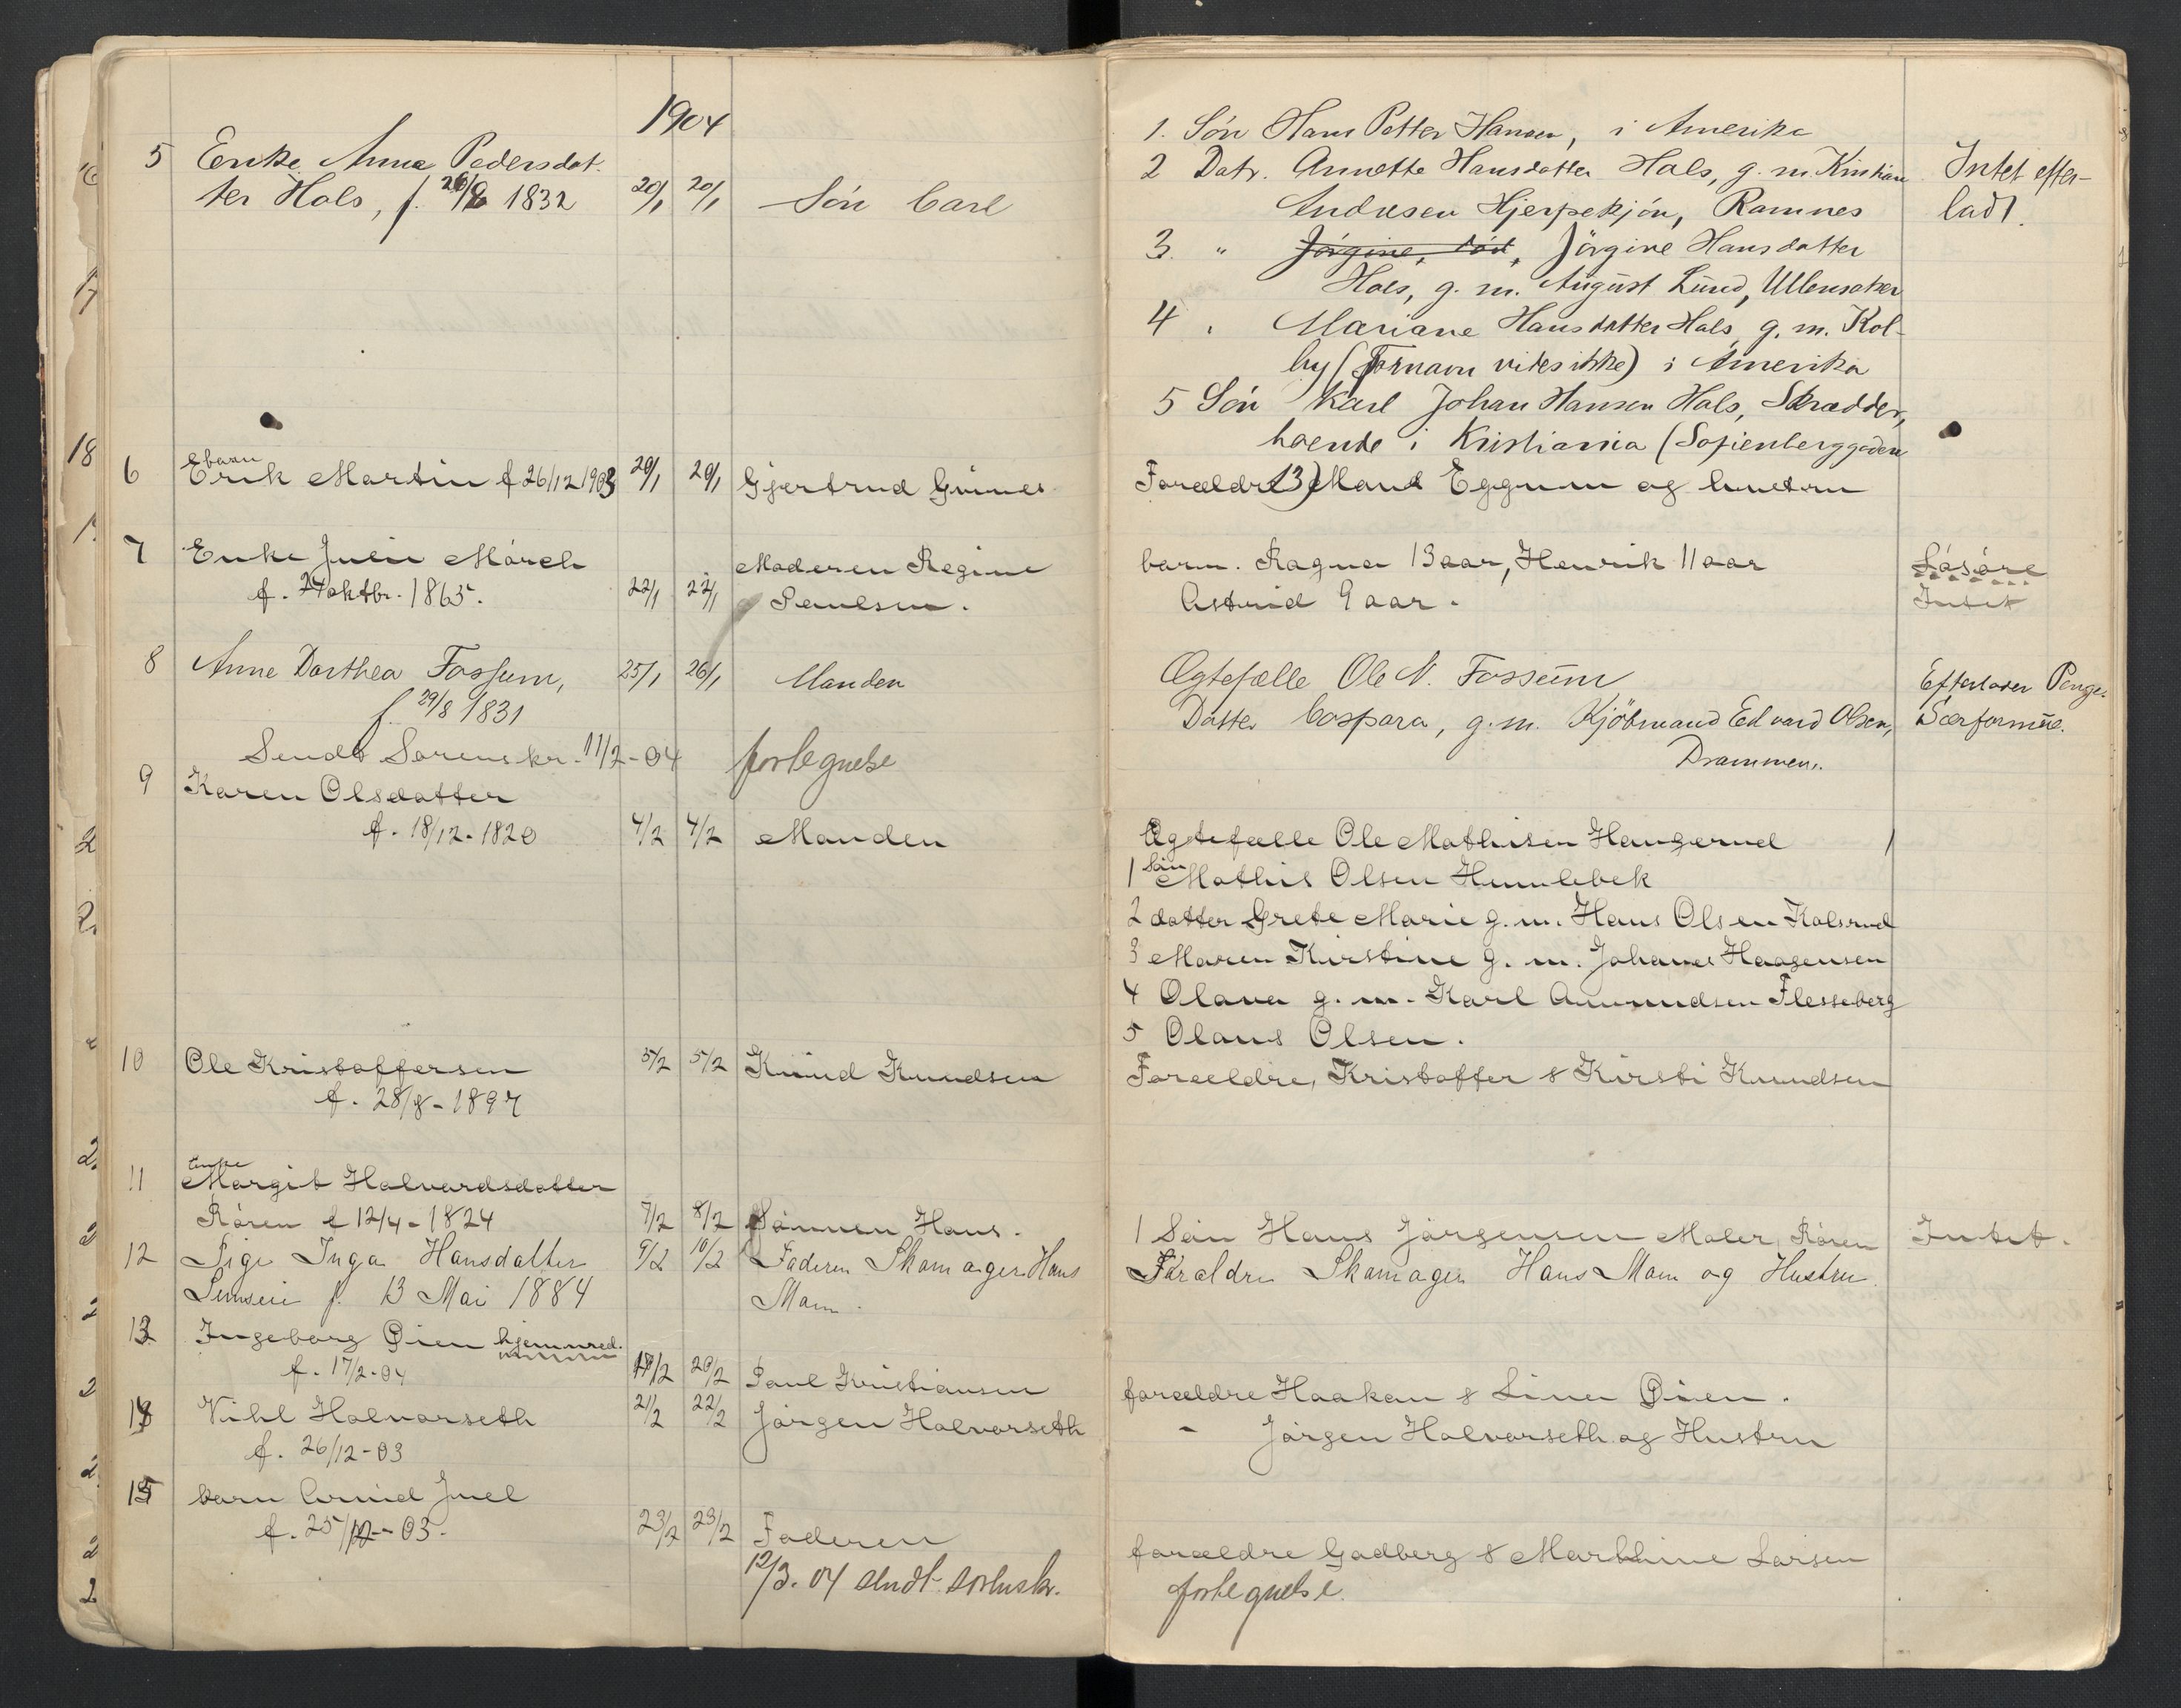 1904
5 Enke Anna Pedersdat-
ter Hals, f. 26/8 1832 20/1 20/1 Søn Carl
6 Ebarn
Erik Martin f 26/12 1903 20/1 20/1 Gjertrud
7 Enke Julie Mörch Moderen Regine
f. 24 oktbr. 1865. 22/1 22/1 Paulsen.
8 Anne Dorthea Fossum, 25/1 26/1 Manden
f. 29/8 1831
Sendt Sorenskr. 11/2-04 fortegnelse
9 Karen Olsdatter
f. 18/12-1820 4/2 4/2 Manden
10 Ole Kristoffersen 5/2 5/2 Knud Knudsen
f. 28/8-1897
11 Enke
Margit Halvordsdatter
Rören f 12/4-1824 7/2 8/2 Sönnen Hans.
12 Pige Inga Hansdatter 9/2 10/2 Faderen Skomager Hans
f. 13 Mai 1884 Mam.
13 Ingeborg Øien hjemmed.
f. 17/2-04 19/2 20/2 Paul Kristiansen
14 Vihl Halvorseth 21/2 22/2 Jörgen Halvorseth
f. 26/12-03
15 barn Arvid Juel
f. 25/12-03. 23/2 23/2 Faderen
12/3.04 sendt sorenskr.
1. Søn Hans Petter Hansen, i Amerika
2 Datr. Annette Hansdatter Hals, g. m. Kristian Intet efter-
Andresen Hjerpekjøn, Ramnes ladt.
3. " Jörgine, död, Jörgine Hansdatter
Hals, g. m. August Lund, Ullensaker
4 " Mariane Hansdatter Hals, g. m. Kol-
by (Fornavn vides ikke) i Amerika
5 Søn Karl Johan Hansen Hals, Skrædder,
boende i Kristiania (Sofienberggaden
13)
Forældre Maul Eggum og hustru
barn. Ragna 13 aar, Henrik 11 aar Lösöre
Astrid 9 aar. Intet
Ægtefælle Ole N. Fossum Efterlader Penge.
Datter Caspara, g. m. Kjöbmand Edvard Olsen, Særformue.
Drammen.
Ægtefælle Ole Mathisen Haugerud
1 Sön Mathis Olsen Humlebek
2 datter Grete Marie g. m. Hans Olsen Kolsrud
3 Maren Kirstine g. m. Johanes Haagensen
4 Olava g. m. Karl Amundsen Flesseberg
5 Olaus Olsen.
Forældre, Kristoffer & Kirsti Knudsen
1 Sön Hans Jörgensen Maler, Rören Intet.
Forældre Skomager Hans Mam og Hustru.
forældre Haakon & Lina Øien.
- Jörgen Halvorseth og Hustru
forældre Gadberg & Marthine Larsen
fortegnelse.